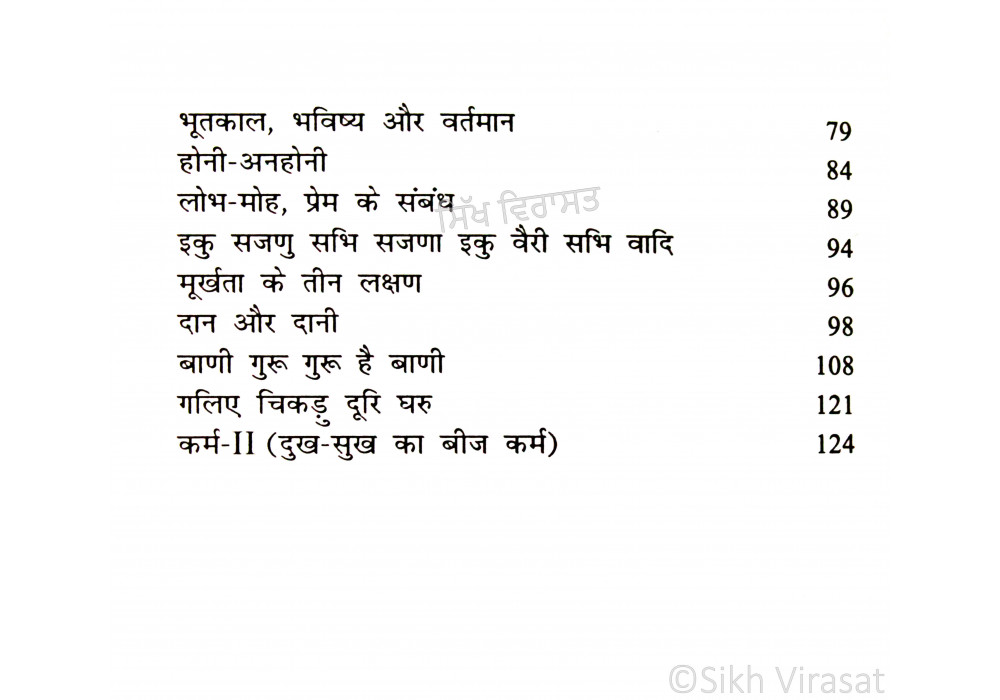 भूतकाल, भविष्य और वर्तमान 79
होनी-अनहोनी 84
लोभ-मोह, प्रेम के संबंध 89
ਸਿੱਖ ਵਿਰਾਸਤ
इकु सजणु सभि सजणा इकु वैरी सभि वादि 94
मूर्खता के तीन लक्षण 96
दान और दानी 98
बाणी गुरू गुरू है बाणी 108
गलिए चिकड़ु दूरि घरु 121
कर्म-II (दुख-सुख का बीज कर्म) 124
©Sikh Virasat